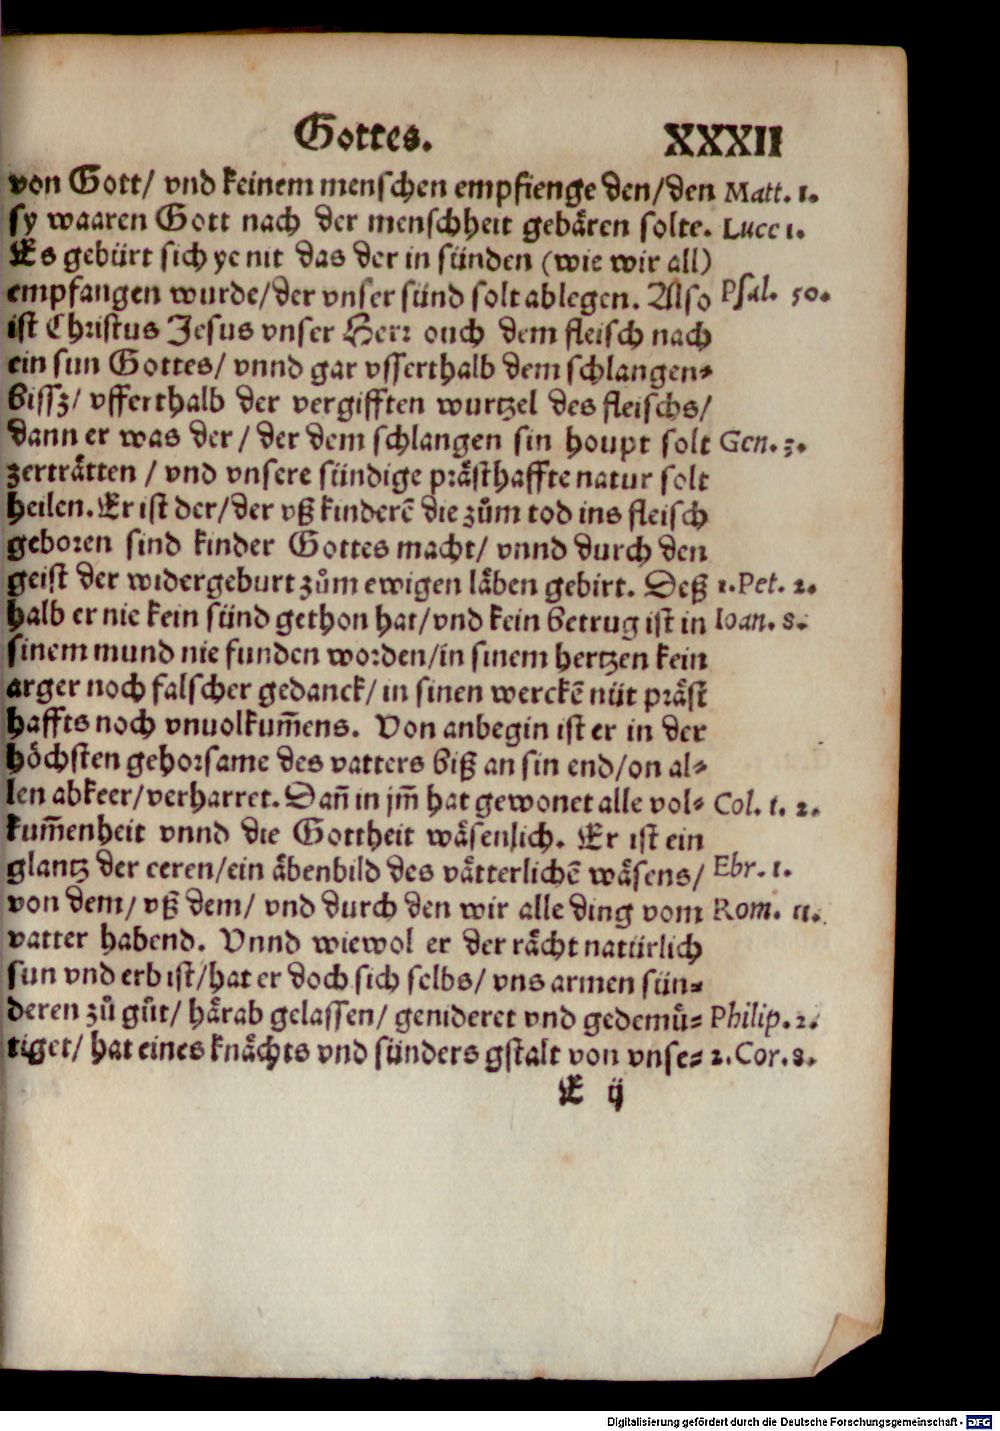 Gottes. XXXII
von Gott/ vnd keinem menschen empfienge den/den Matt. 1.
sy waaren Gott nach der menschheit gebåren solte. Lucę 1.
Es gebürt sich ye nit das der in sünden (wie wir all)
empfangen wurde/der vnser sünd solt ablegen. Also Psal. 50.
ist Christus Jesus vnser Herr ouch dem fleisch nach
ein sun Gottes/ vnnd gar vsserthalb dem schlangen⸗
bissz/ vsserthalb der vergifften wurtzel des fleischs/
dann er was der/ der dem schlangen sin houpt solt Gen. 3.
zerträtten / vnd vnsere sündige pråsthaffte natur solt
heilen. Er ist der/der vß kinderē die zům tod ins fleisch
geboren sind kinder Gottes macht/ vnnd durch den
geist der widergeburt zům ewigen låben gebirt. Deß 1.Pet. 2.
halb er nie kein sünd gethon hat/vnd kein betrug ist in Ioan. 8.
sinem mund nie funden worden/in sinem hertzen kein
arger noch falscher gedanck/ in sinen werckē nüt pråst
haffts noch vnuolkum̄ens. Von anbegin ist er in der
höchsten gehorsame des vatters biß an sin end/on al⸗
len abkeer/verharret. Dan̄ in jm̄ hat gewonet alle vol⸗ Col. 1. 2.
kum̄enheit vnnd die Gottheit wåsenlich. Er ist ein
glantz der eeren/ein åbenbild des våtterlichē wåsens/ Ebr. 1.
von dem/ vß dem/ vnd durch den wir alle ding vom Rom. 11.
vatter habend. Vnnd wiewol er der råcht natürlich
sun vnd erb ist/hat er doch sich selbs/ vns armen sün⸗
deren zů gůt/ hårab gelassen/ genideret vnd gedemů⸗ Philip. 2.
tiget/ hat eines knåchts vnd sünders gstalt von vnse⸗ 2. Cor. 8.
E ij
Digitalisierung gefördert durch die Deutsche Forschungsgemeinschaft - DFG